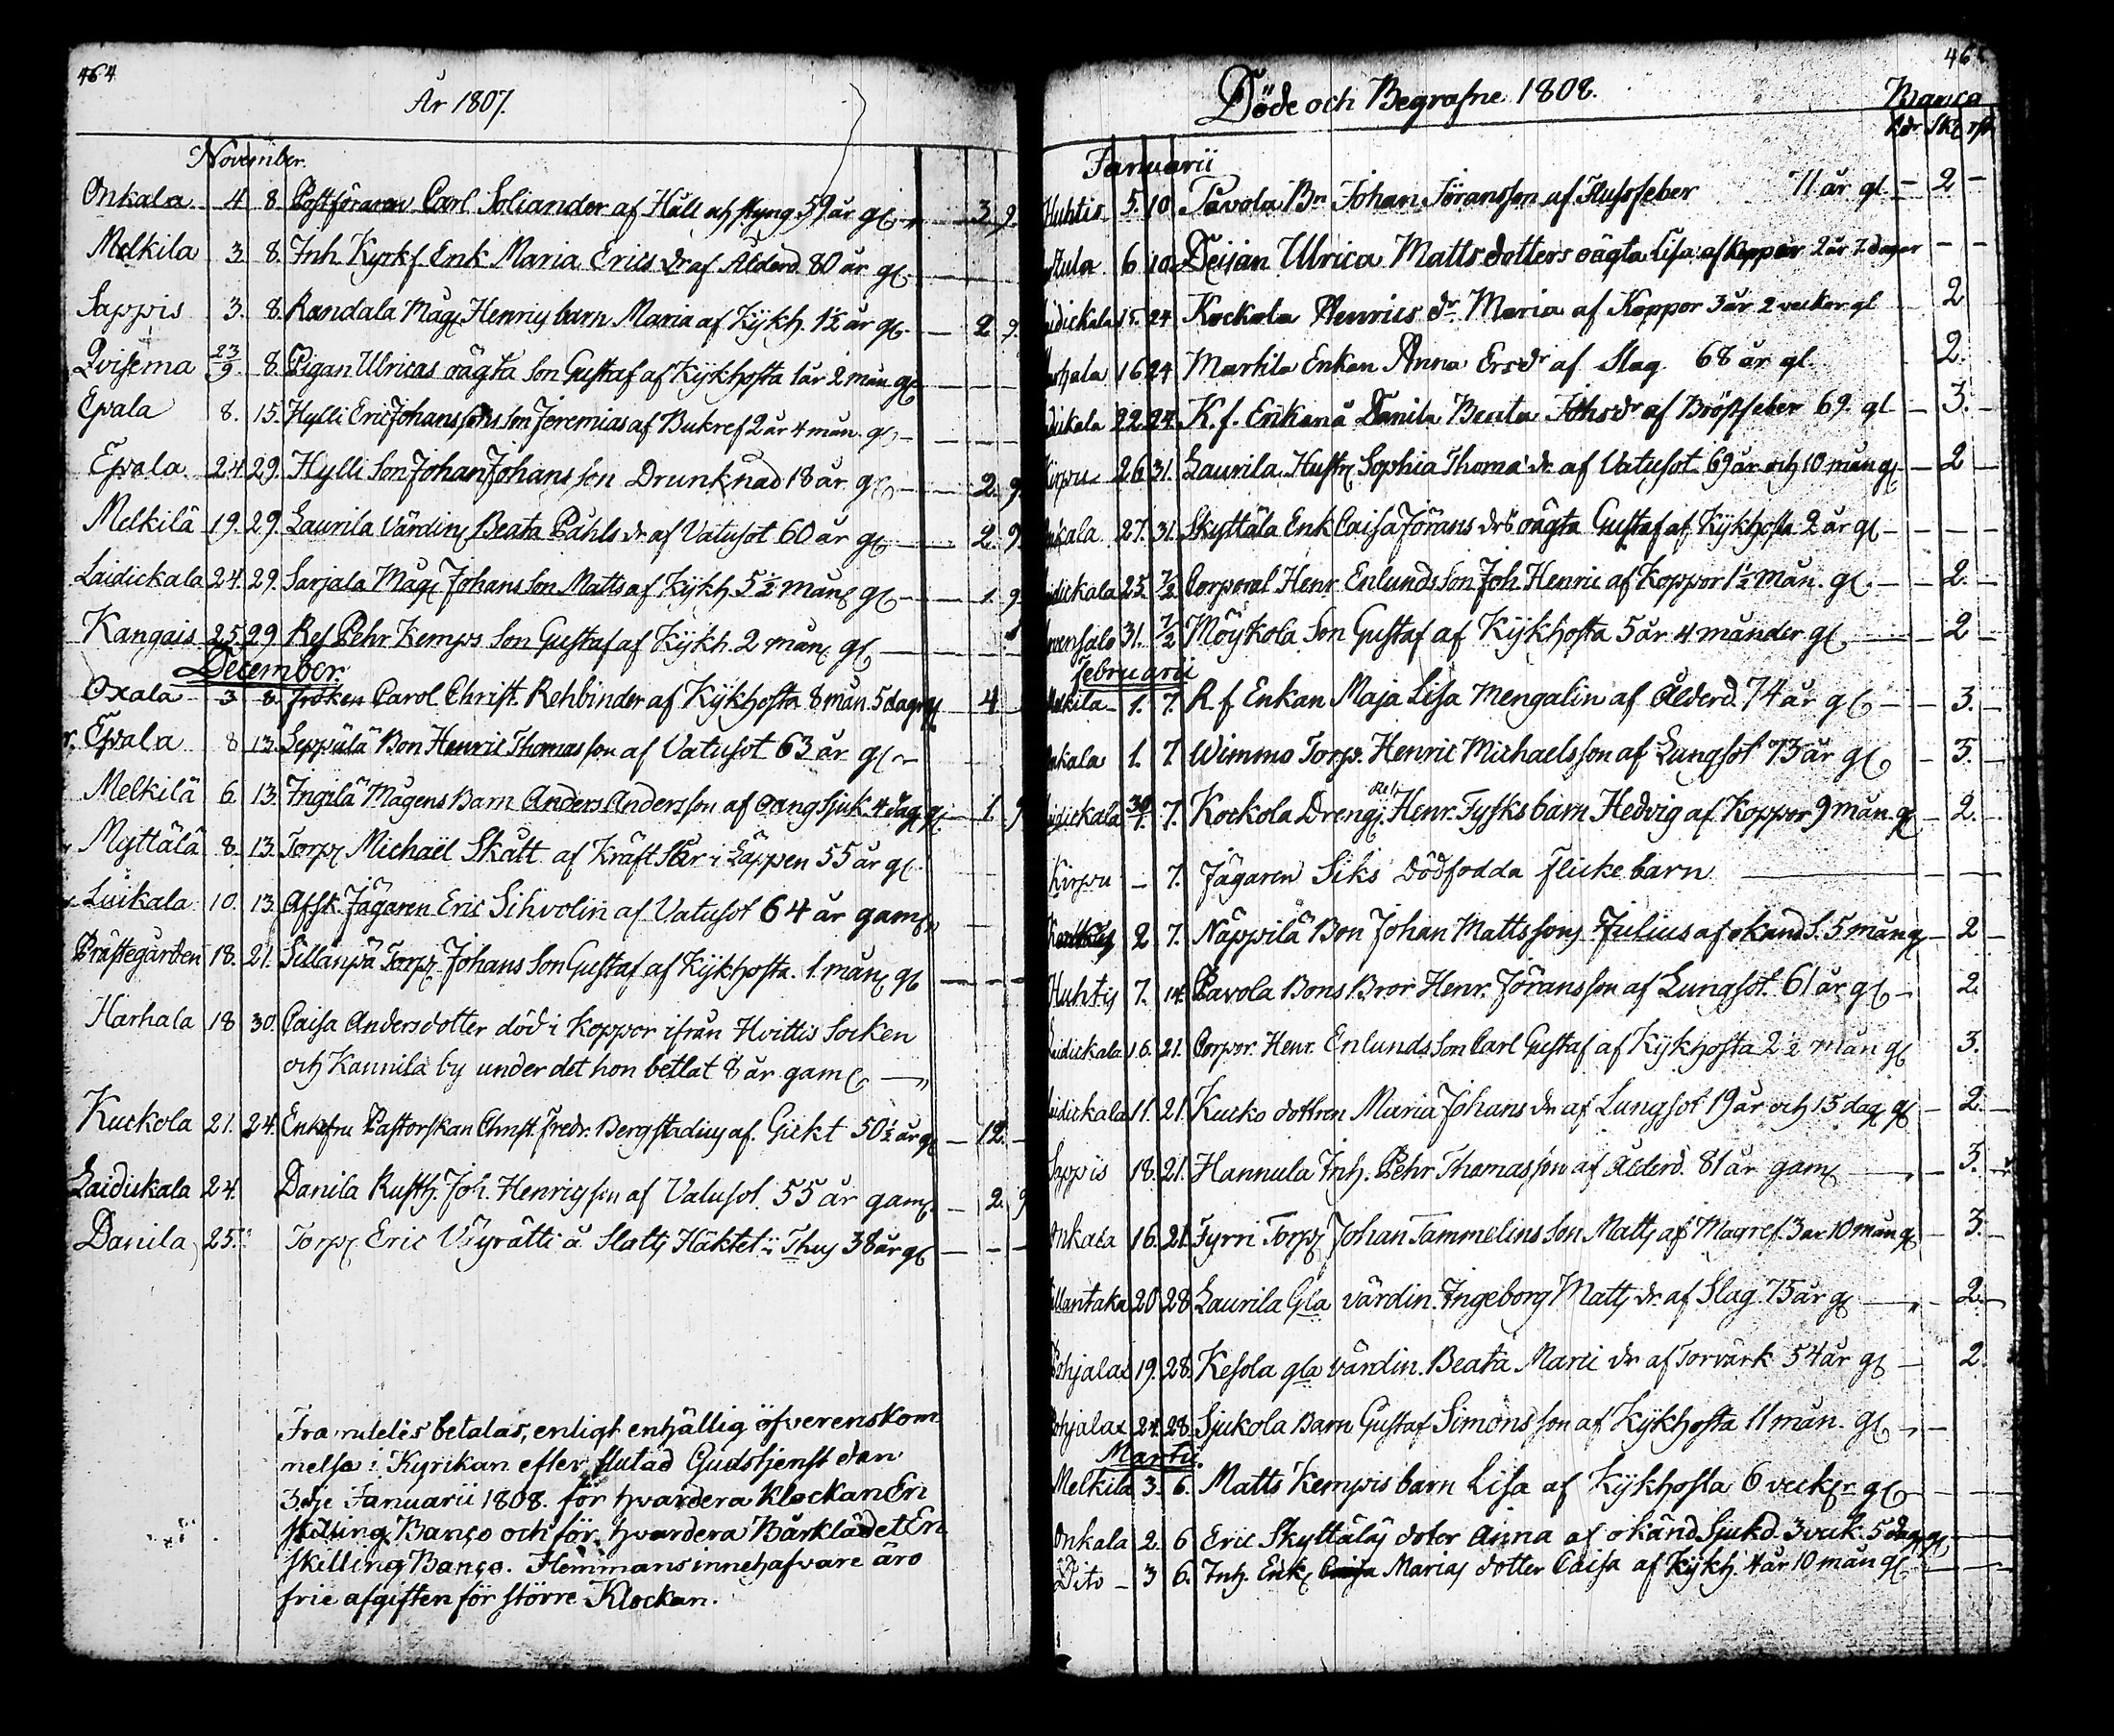 464
År 1807.
November.
Onkala 4 8. Postföraren Carl Soliander af Håll och styng 59 år gl. – 3. 9.
Melkila 3 8. Inh. Kyrkf. Enk Maria Erics dr af Ålderd. 80 år gl. –
Sappis 3. 8. Randala Måg Henrics barn Maria af Kykh. 1½ år gl. – 2. 9.
Qvisema 23/9. 8. Pigan Ulricas oägta Son Gustaf af Kykhosta 1 år 2 mån. gl. – – –
Epala 8. 15. Hylli Eric Johanssons son Jeremias af Bukref 2 år 4 mån. gl. – – – –
Epala 24. 29. Hylli Son Johan Johansson Drunknad 18 år gl. – – 2. 9.
Melkilä 19. 29. Laurila Värdin Beata Påhls dr af Vatusot 60 år gl. – 2. 9.
Laidickala 24. 29. Sarjala Måg Johans Son Matts af Kykh. 5½ mån gl. – 1. 9
Kangais 25. 29 Ref Pehr Kemps Son Gustaf af Kykh. 2 mån. gl. – – –
December.
Oxala 3 8. Fröken Carol. Christ. Rehbinder af Kykhosta 8 mån. 5 dagr gl. – 4
Epala 8 13. Seppälä Bon Henric Thomasson af Vatusot 63 år gl. –
Melkilä 6. 13. Ingilä Mågens Barn Anders Andersson af Mangsjuk. 4 dag. gl. – 1. 9
Myttälä 8. 13. Torp. Michaël Skått af Kräft Sår i Läppen 55 år gl.
Luikala 10. 13. Afsk. Jägaren Eric Sihvolin af Vatusot 64 år gam.
Prästegården 18. 21. Sillanpä Torp. Johans Son Gustaf af Kykhosta. 1. mån. gl. – – –
Harhala 18 30. Caisa Andersdotter död i Koppor ifrån Hvittis Socken
och Kannila by under det hon betlat 8 år gaml. –
Kuckola 21. 24. Enkefru Pastorskan Christ. Fredr. Bergstadius af. Gickt 50½ år gl. – 12. –
Laidickala 24. Danila Rusth. Joh. Henricsson af Vatusot 55 år gam. – 2. 9
Danila 25. Torp. Eric Vyrätti å Slotts Häktet i Thus 38 år gl. – – –
Framdeles betalas, enligt enhällig öfverenskom
melse i Kyrikan efter slutad Gudstjenst den
3dje Januarii 1808. för hvardera Klockan En
skilling Banco och för hvardera Bårklädet En
skilling Banco. Hemmans innehafvare äro
frie afgiften för större Klockan.
Döde och Begrafne 1808. Banco
Rdr Sk. rst.
Januarii
Huhtis 5. 10. Pavola Bn Johan Jöransson af Flussfeber 11 år gl. – 2. –
6 10. Deijan Ulrica Mattsdotters oägta Lisa af Koppor 2 år 7. dagar – –
15. 24 Kockola Henrics dr Maria af Koppor 3 år 2 veckor gl. 2
16 24 Martila Enkan Anna Ersdr af Slag 68 år gl. 2.
22. 24. K. f. Enkan å Danila Beata Johsdr af Bröstfeber 69. gl – 3. –
Kirpu 26 31. Laurila Hustr. Sophia Thomædr af Vatusot 69 år och 10 mån gl. – 2 –
27. 31. Skyttäla Enk Caisa Jörans drs oägta Gustaf af Kykhosta 2 år gl. – – –
25. 7/2. Corporal Henr. Enlunds Son Joh. Henric af Koppor 1½ mån. gl. – – 2. –
31. 7/2 Möykola Son Gustaf af Kykhosta 5 år 4 månder gl. – 2 –
Februarii
Melkila – 1. 7. R f Enkan Maja Lisa Mengalin af Ålderd. 74 år gl. – – 3. –
Onkala 1. 7 Wimmo Torp. Henric Michaelsson af Lungsot 73 år gl. – 3. –
Laidickala 30/1. 7. Kockola Dreng. Henr. Fysks barn Hedvig af Koppor 9 mån. gl. – 2. –
Kirpu – 7. Jägaren Siks Dödfödda flicke barn – – –
2 7. Näppilä Bon Johan Mattssons Julius af okänd S. 5 mån gl. – 2 –
Huhtis 7. 14. Pavola Bons Bror Henr. Jöransson af Lungsot. 61 år gl. – 2.
Laidickala 16. 21. Corpor. Henr. Enlunds Son Carl Gustaf af Kykhosta 2½ mån gl. 3.
Laidickala 11. 21. Kucko dottren Maria Johans dr af Lungsot 19 år och 15 dag. gl. – 2. –
Sappis 18. 21. Hannula Inh. Pehr Thomasson af Ålderd. 81 år gam. – 3. –
Onkala 16. 21. Fyrri Torp. Johan Tammelins Son Matts af Magref. 3 år 10 mån gl. – 3. –
20 28. Laurila Gla värdin. Ingeborg Matts dr. af Slag 75 år gl. – 2. –
Pohjalax 19. 28. Kesola gla värdin. Beata Marii dr af Torvärk 54 år gl. – 2.
Pohjalax 24. 28. Sjukola Barn Gustaf Simonsson af Kykhosta 11 mån. gl. –
Martii.
Melkila 3. 6. Matts Kempis barn Lisa af Kykhosta 6 veckr. gl. – – –
Onkala 2. 6 Eric Skyttäläs doter Anna af okänd Sjukd. 3 veck. 5 dag. gl. – –
Dito – 3 6. Inh. Enk. Marias dotter Caisa af Kykh. 4 år 10 mån gl. – – –